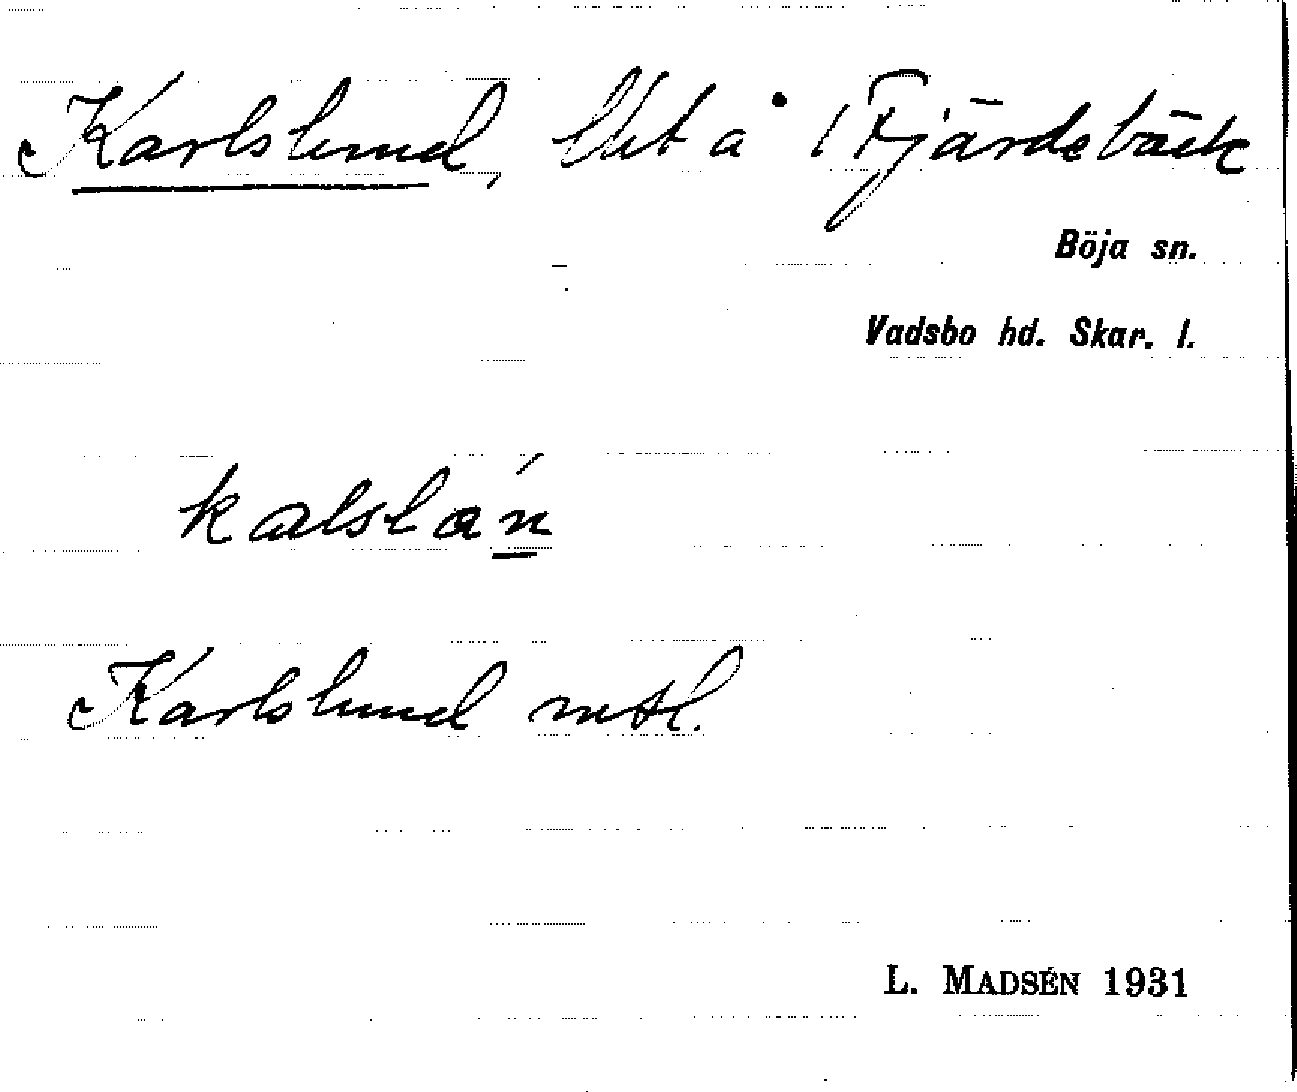 Karlslund, lht å 1 Fjärdebäck
Böja sn.
Vadsbo hd. Skar. l.
kalslán
Karlslund mtl.
L. MADSÉN 1931